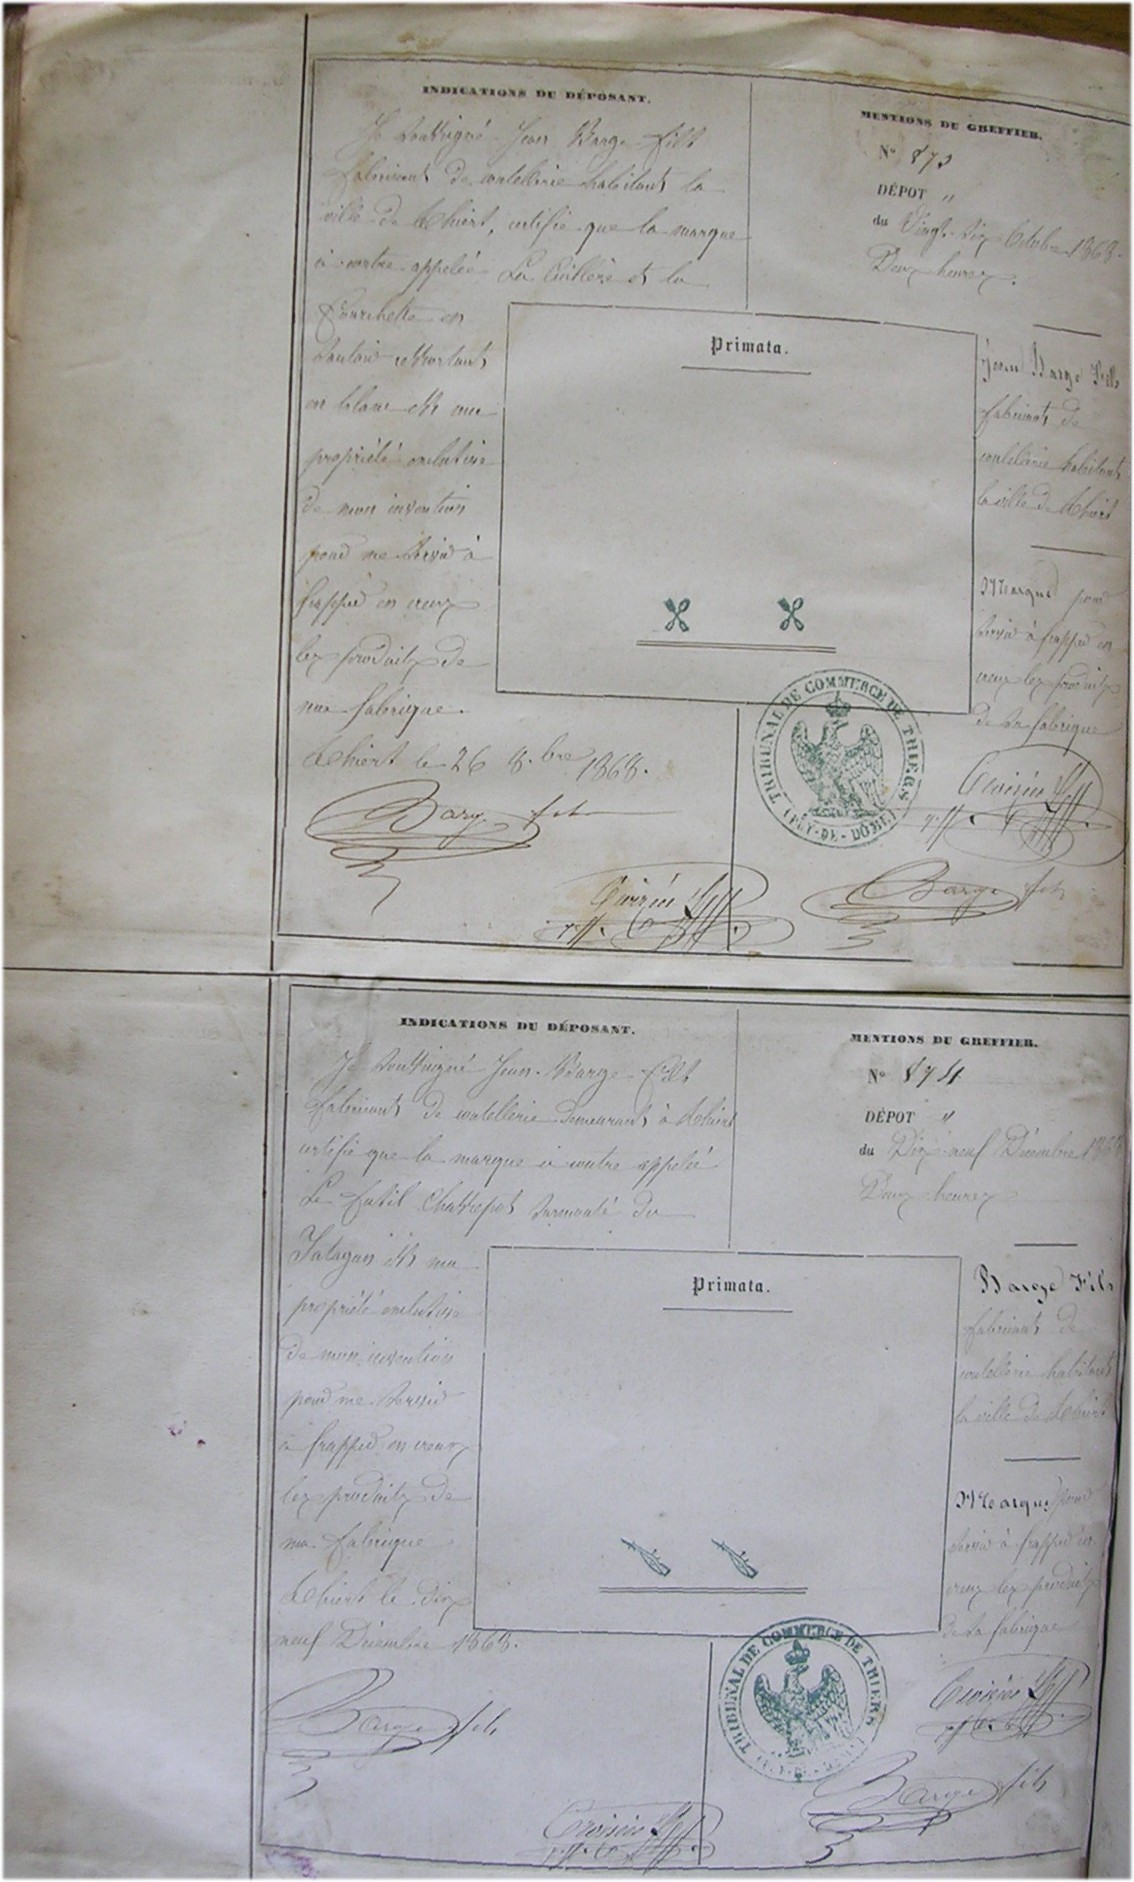 INDICATIONS DU DÉPOSANT.
Je soussigné Jean Barge fils
fabricant de coutellerie habitant la
ville de Thiers, certifie que la marque
ci contre appelée La Cuillère et la
Fourchette en
Sautoir ressortant
en blanc est ma
propriété exclusive
de mon invention
pour me servir à
frapper en creux
les produits de
ma fabrique.
Thiers le 26 8.bre 1868.
Barge fils
MENTIONS DU GREFFIER.
N° 873
DÉPOT "
du Vingt-six Octobre 1868.
Deux heures.
Primata.
Jean Barge Fils
fabricant de
coutellerie habitant
la ville de Thiers
Marque pour
servir à frapper en
creux les produits
de sa fabrique
TRIBUNAL DE COMMERCE DE THIERS
(PUY-DE-DÔME)
Barge fils
INDICATIONS DU DÉPOSANT.
Je soussigné Jean Barge Fils
fabricant de coutellerie demeurant à Thiers
certifie que la marque ci contre appelée
Le fusil Chassepot surmonté du
Yatagan est ma
propriété exclusive
de mon invention
pour me servir
à frapper en creux
les produits de
ma fabrique
Thiers le dix
neuf Décembre 1868.
Barge fils
MENTIONS DU GREFFIER.
N° 874
DÉPOT "
du Dix-neuf Décembre 1868
Deux heures
Primata.
Barge Fils
fabricant de
coutellerie habitant
la ville de Thiers
Marque pour
servir à frapper en
creux les produits
de sa fabrique
TRIBUNAL DE COMMERCE DE THIERS
(PUY-DE-DÔME)
Barge fils